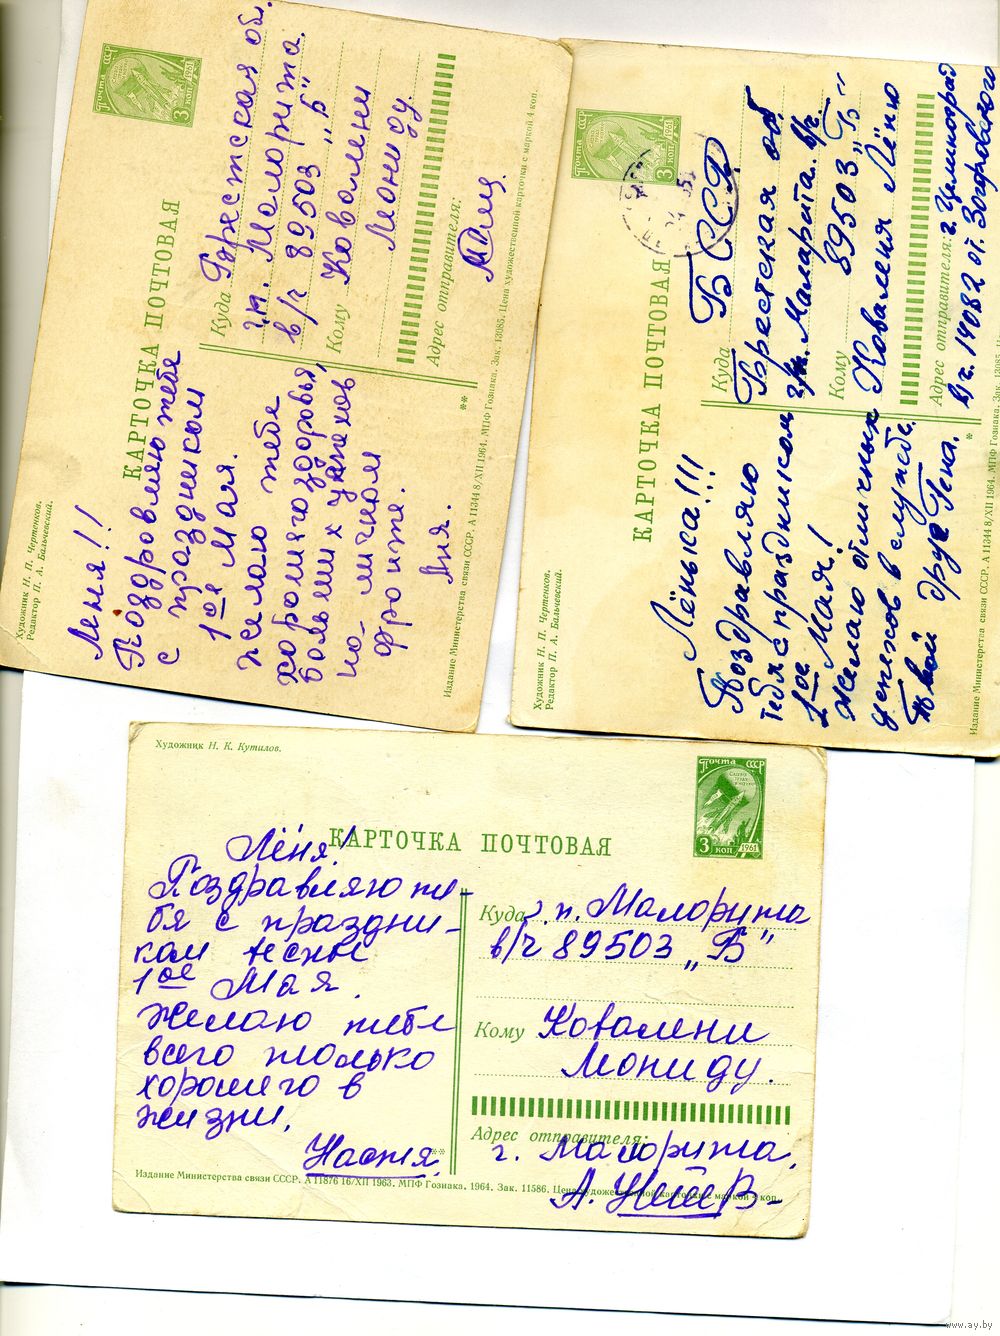 Художник Н. П. Чертенков.
Редактор П. А. Бальчевский.
КАРТОЧКА ПОЧТОВАЯ
ПОЧТА СССР
3 КОП
1961
Леня!!
Поздровляю тебя
с праздником
1ое Мая.
желаю тебе
хорошего здоровья,
больших успехов
на личном
фронте.
Аня.
Куда Брестская обл.
г.п. Малорита.
в/ч 89503 "Б"
Кому Ковалени
Леониду.
Адрес отправителя:
Издание Министерства связи СССР. А 11344 8/XII 1964. МПФ Гознака. Зак. 13085. Цена художественной карточки с маркой 4 коп.
**
Художник Н. П. Чертенков.
Редактор П. А. Бальчевский.
КАРТОЧКА ПОЧТОВАЯ
ПОЧТА СССР
3 КОП
1961
Лёнька!!!
Поздравляю
тебя с праздником
1ое Мая!
Желаю отличных
успехов в службе.
Твой друг Гена.
Куда БССР
Брестская об.
г/п. Маларита. в/ч
89503 "Б"
Кому Коваленя Лёню
Адрес отправителя: г. Целиноград
в/ч. 14082 от. Загоровского
Издание Министерства связи СССР. А 11344 8/XII 1964. МПФ Гознака. Зак. 13085.
*
Художник Н. К. Кутилов.
КАРТОЧКА ПОЧТОВАЯ
ПОЧТА СССР
3 КОП
1961
Лёня!
Поздравляю те-
бя с праздни-
ком весны
1ое Мая.
Желаю тебе
всего только
хорошего в
жизни.
Настя.
Куда г. п. Малорита
в/ч 89503 „Б"
Кому Ковалени
Леониду.
Адрес отправителя:
г. Малорита.
**
Издание Министерства связи СССР. А 11876 16/XII 1963. МПФ Гознака. 1964. Зак. 11586. Цена художественной карточки с маркой 4 коп.
www.ay.by